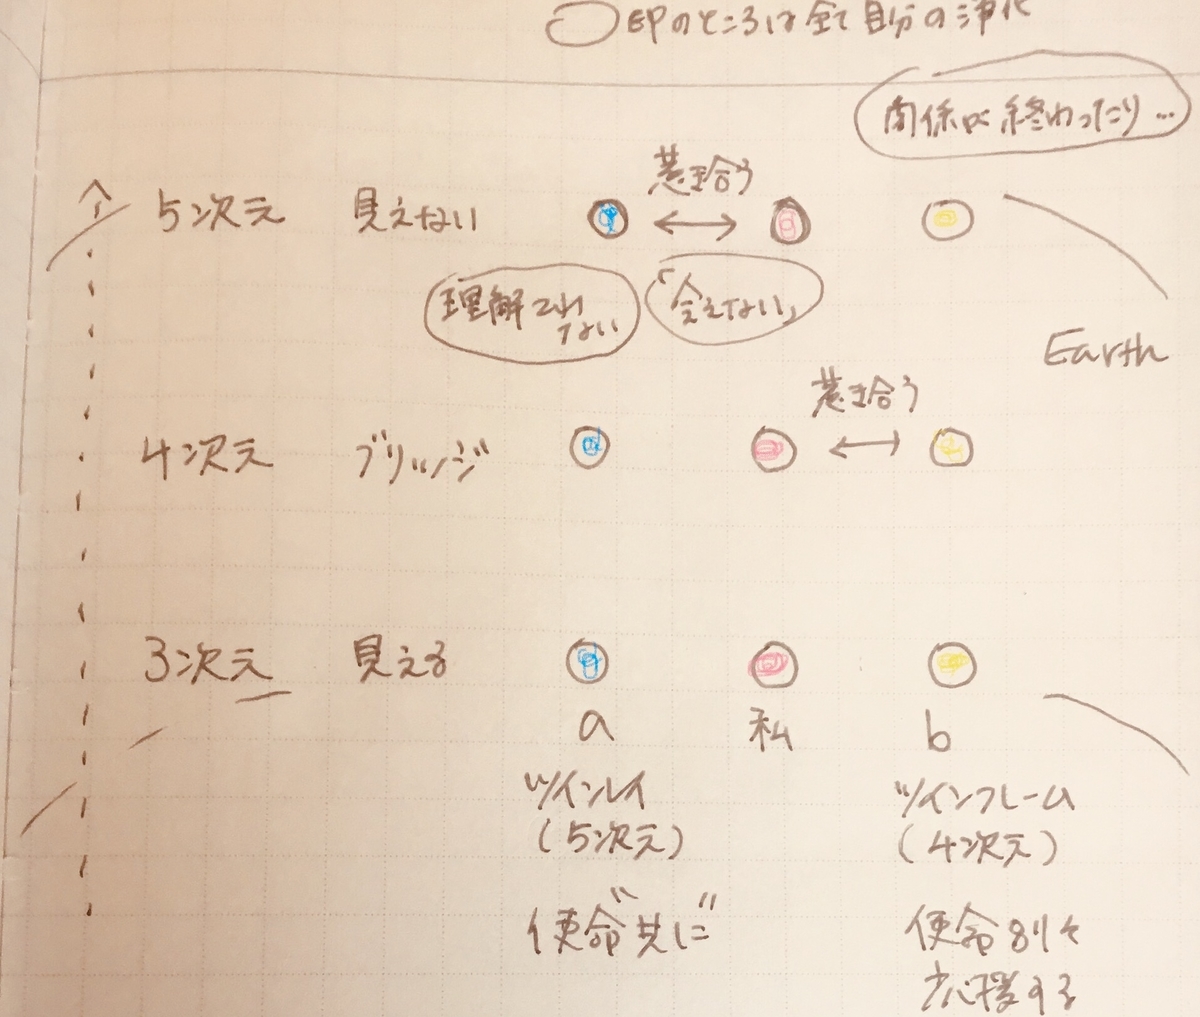 ○印のところは全て自分の浄化
関係が終わったり…
惹き合う
5次元 見えない
理解されない
「会えない」
Earth
惹き合う
4次元 ブリッジ
3次元 見える
a 私 b
ツインレイ ツインフレーム
(5次元) (4次元)
使命"共に" 使命別々
応援する